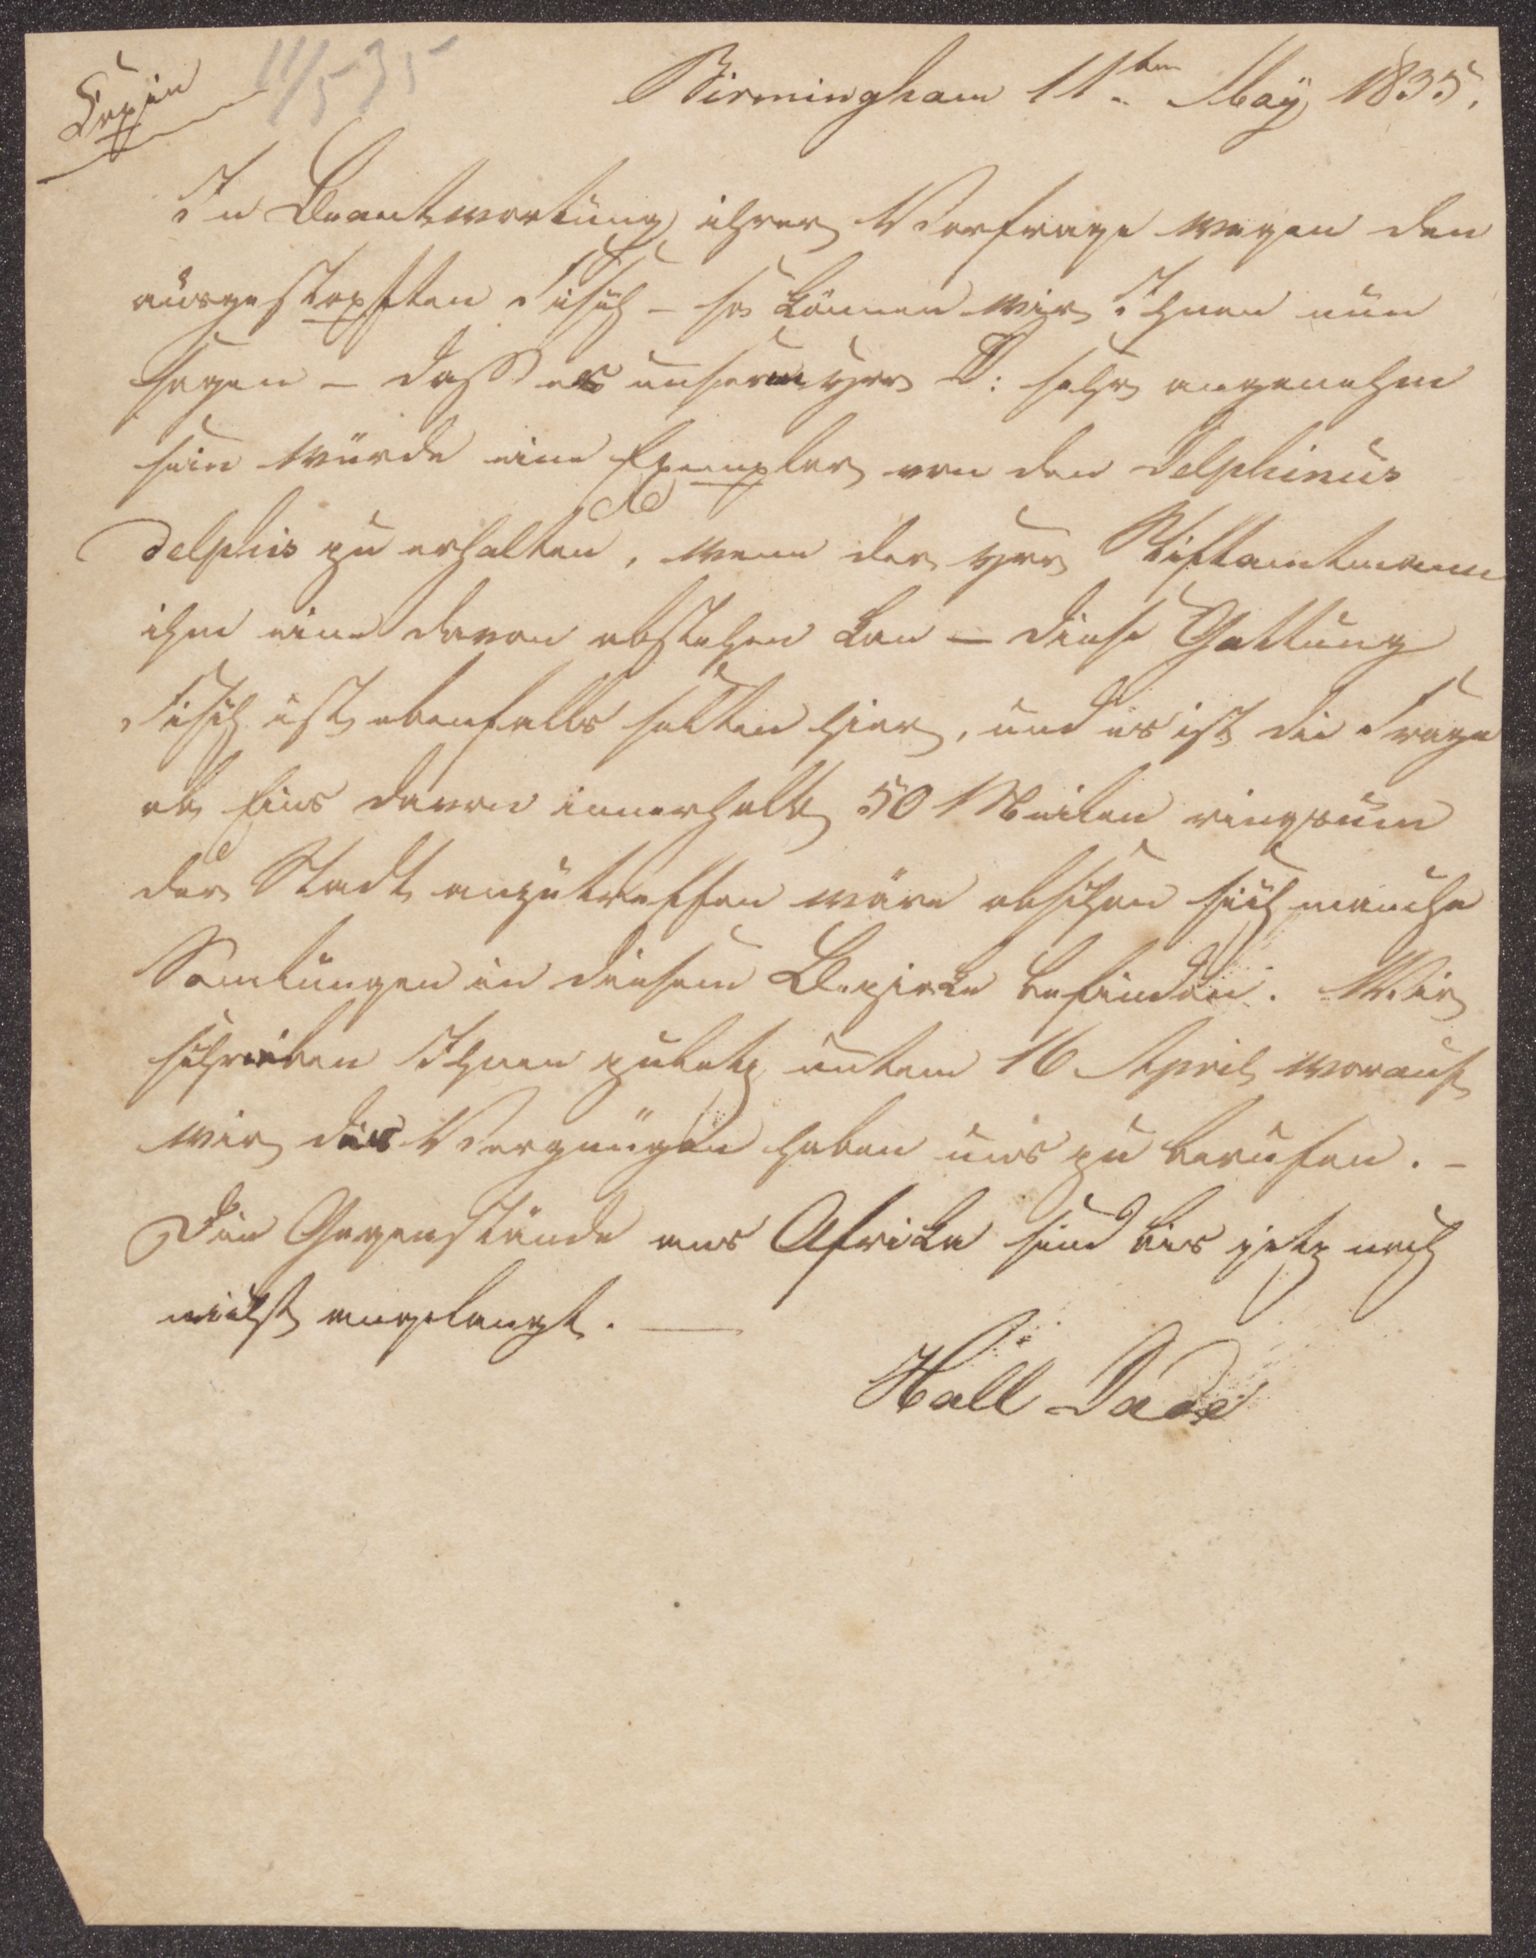 Copia
11/5 35
Birmingham 11ten Maÿ 1835.
In Beantwortung ihrer Verfrage wegen den
ausgestopften Fisch – so können wir Ihnen nun
sagen – daß es unserm Hrn D: sehr angenehm
sein würde eine Exemplar von den Delphinus
Delphis zu erhalten, wenn der Hrr Stiftamtmann
ihm eine davon abstehen kan – diese Gattung
Fisch ist ebenfalls selten hier, und es ist die Frage
ob Eins davon innerhalb 50 Meilen ringsum
der Stadt anzutreffen wäre obschon sich manche
Samlungen in diesem Bezirke befinden. Wir
schrieben Ihnen zuletz untem 16 April worauf
wir das Vergnügen haben uns zu berufen. –
Die Gegenstände aus Afrika sind bis jetz noch
nicht angelangt. —
Hall